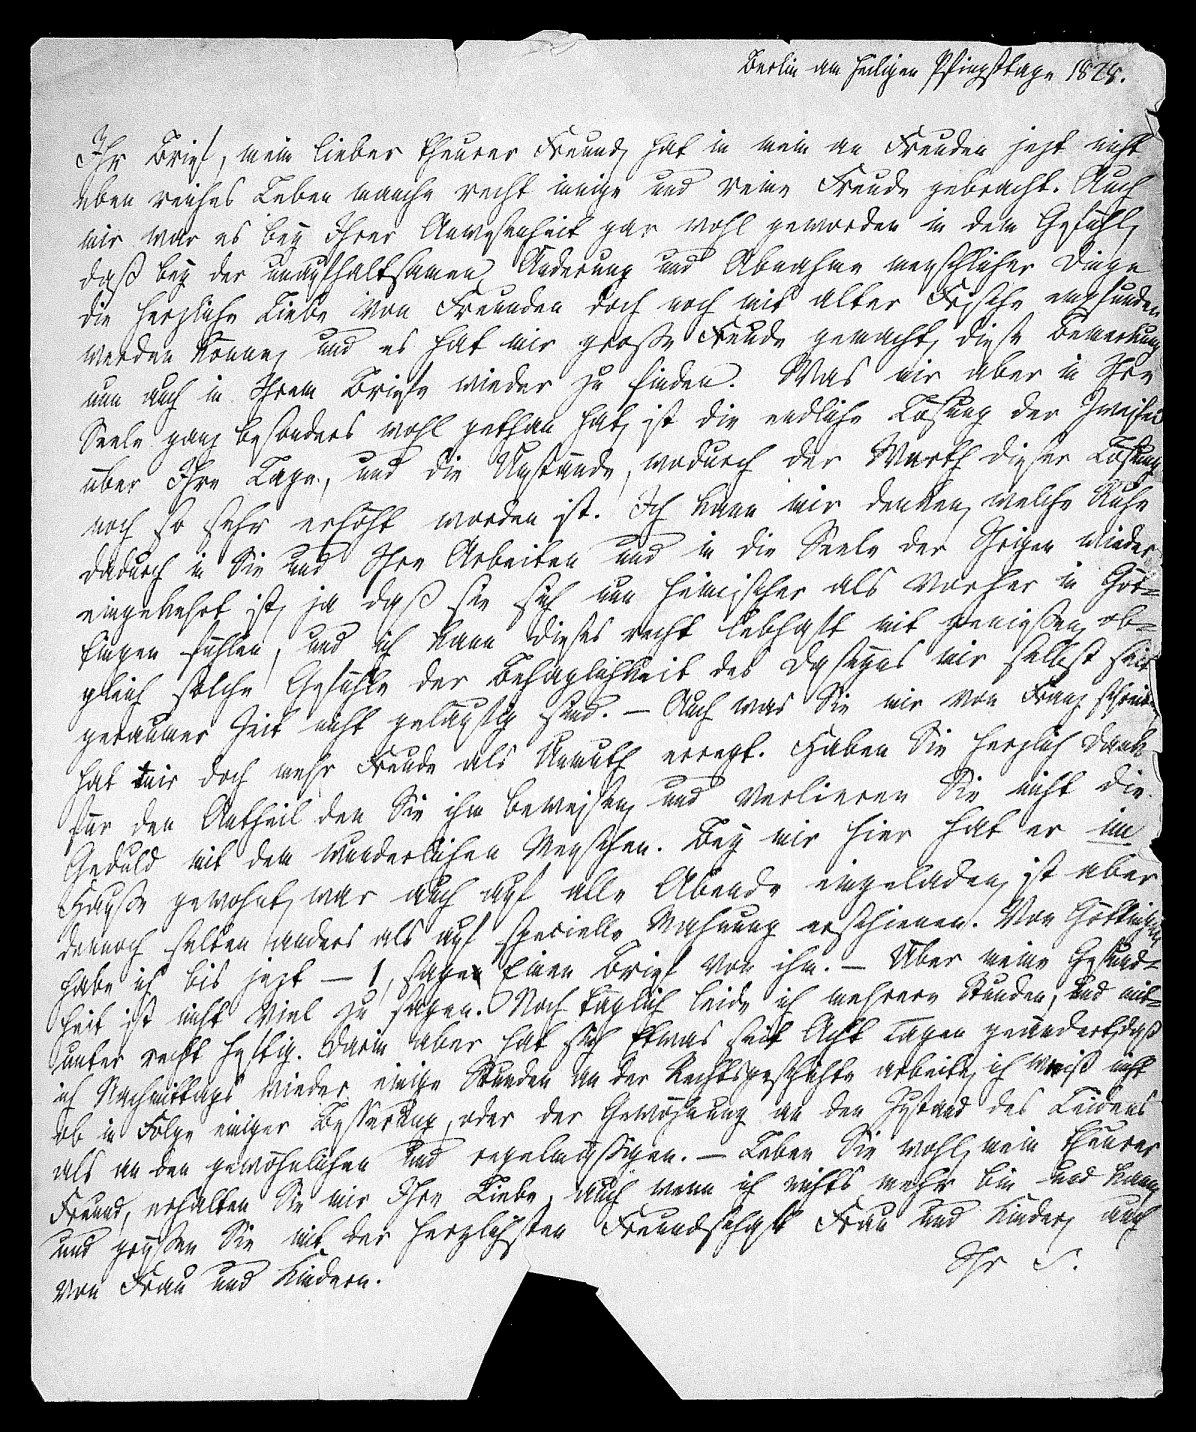 Berlin am heiligen Pfingsttage 1828.
Ihr Brief, mein lieber theurer Freund, hat in mein an Freuden jezt nicht
eben reiches Leben manche recht innige und reine Freude gebracht. Auch
mir war es bey Ihrer Anwesenheit gar wohl geworden in dem Gefühl,
daß bey der unaufhaltsamen Änderung und Abnahme menschlicher Dinge
die herzliche Liebe von Freunden doch noch mit alter Frische empfunden
werden könne, und es hat mir große Freude gemacht, diese Bemerkung
nun auch in Ihrem Briefe wieder zu finden. Was mir aber in Ihre
Seele ganz besonders wohl gethan hat, ist die endliche Lösung der Zweifel
über Ihre Lage, und die Umstände, wodurch der Werth dieser Lösung
noch so sehr erhöht worden ist. Ich kann mir denken, welche Ruhe
dadurch in Sie und Ihre Arbeiten und in die Seele der Ihrigen wieder
eingekehrt ist, ja daß sie sich nun heimischer als vorher in Göt-
tingen fühlen, und ich kann dieses recht lebhaft mit genießen, ob-
gleich solche Gefühle der Behaglichkeit des Daseyns mir selbst seit
geraumer Zeit nicht geläufig sind. – Auch was Sie mir von Franz schreiben,
hat mir doch mehr Freude als Unmuth erregt. Haben Sie herzlich Dank
für den Antheil den Sie ihm beweisen, und verlieren Sie nicht die
Geduld mit dem wunderlichen Menschen. Bey mir hier hat er im
Hause gewohnt, war auch auf alle Abende eingeladen, ist aber
dennoch selten anders als auf specielle Mahnung erschienen. Von Göttingen
habe ich bis jezt – 1, sage Einen Brief von ihm. – Über meine Gesund-
heit ist nicht viel zu sagen. Noch täglich leide ich mehrere Stunden, und mit-
unter recht heftig. Darin aber hat sich Etwas seit Acht Tagen geändert, daß
ich Nachmittags wieder einige Stunden an der Rechtsgeschichte arbeite, ich weiß nicht
ob in Folge einiger Besserung, oder der Gewöhnung an den Zustand des Leidens
als an den gewöhnlichen und regelmäßigen. – Leben Sie wohl, mein theurer
Freund, erhalten Sie mir Ihre Liebe, auch wenn ich nichts mehr bin und kann,
und grüßen Sie mit der herzlichsten Freundschaft Frau und Kinder, auch
von Frau und Kindern.
Ihr S.